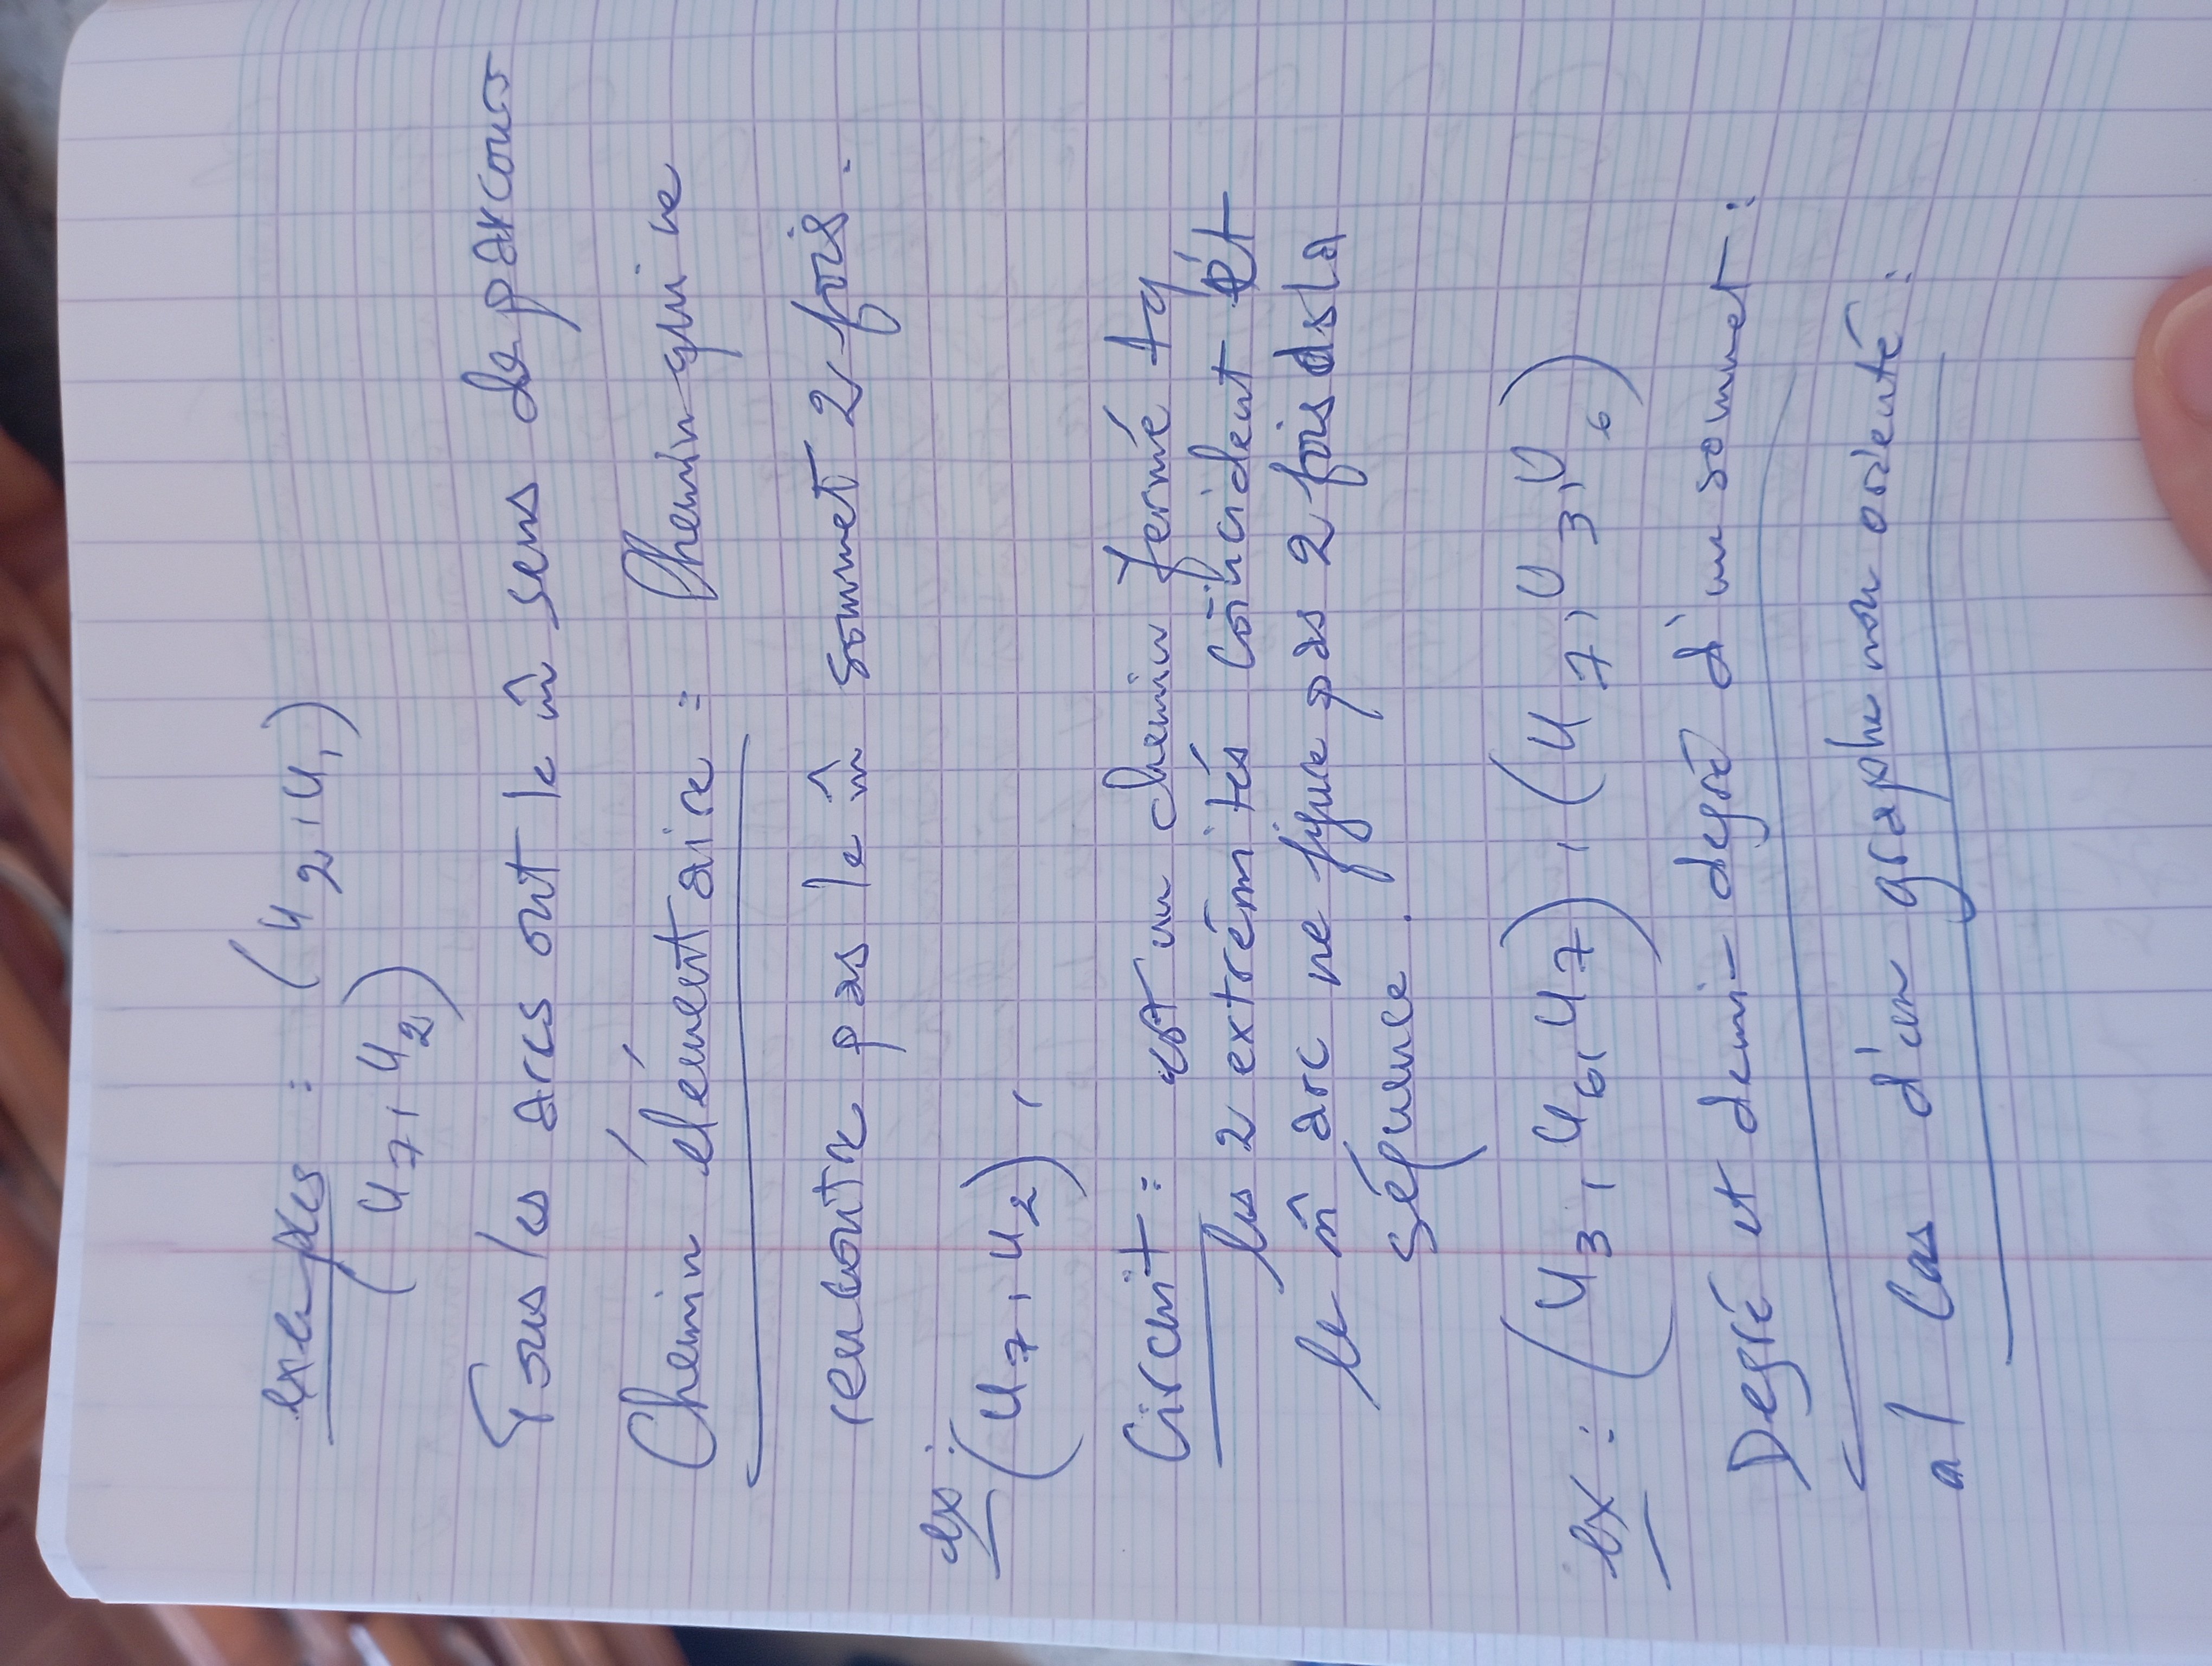 exemples : (u2, u1)
(u7, u2)
Tous les arcs ont le m̂ sens de parcours
Chemin élémentaire = Chemin qui ne
rencontre pas le m̂ sommet 2 fois.
ex :
(u7, u2),
Circuit : est un chemin fermé tq
les 2 extrémités coïncident et
le m̂ arc ne figure pas 2 fois ds la
séquence.
ex : (u3, u6, u7), (u7, u3, u6)
Degré et demi-degré d'un sommet :
a/ Cas d'un graphe non orienté :